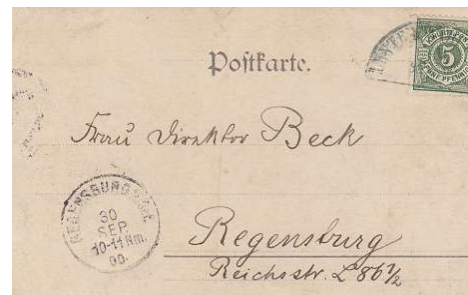 Postkarte.
5
FÜNF PFENNIG
Frau Direktor Beck
REGENSBURG
30
SEP.
10-11 Nm.
00.
Regensburg
Reichsstr. L 86 1/2